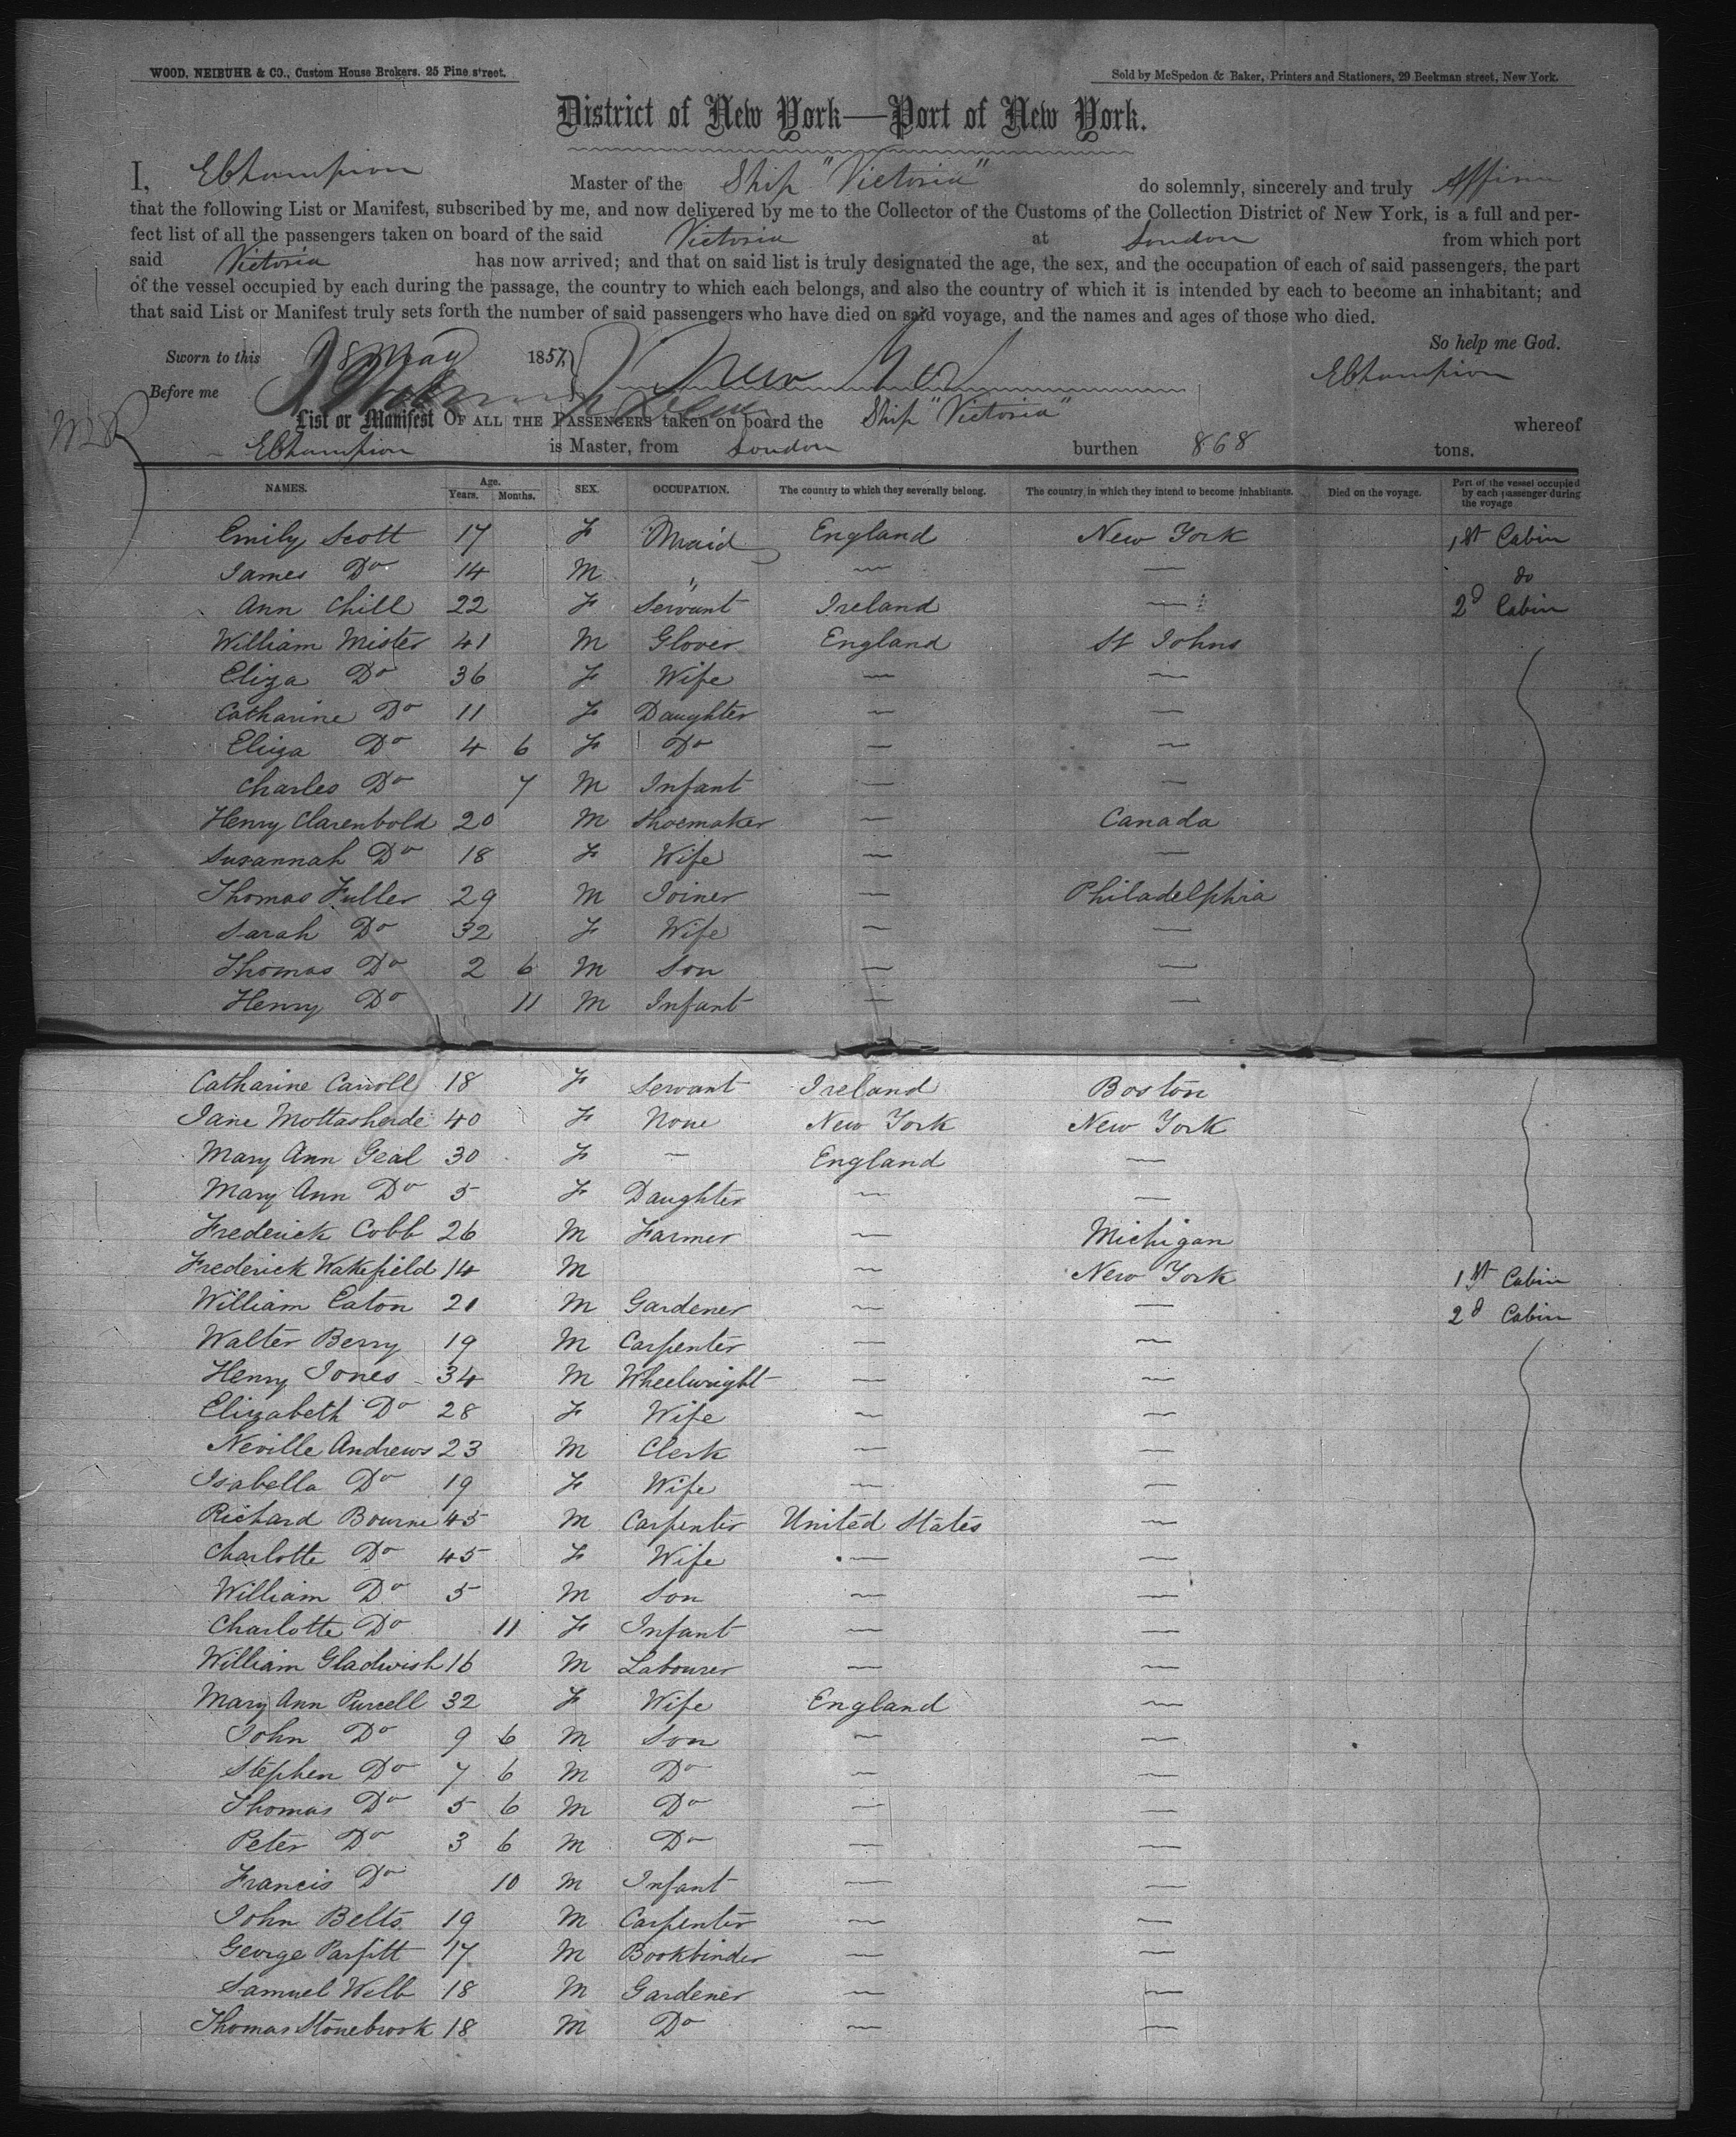 WOOD, NEIBUHR & CO., Custom House Brokers. 25 Pine street.
Sold by McSpedon & Baker, Printers and Stationers, 29 Beekman street, New York.
District of New York—Port of New York.
I, E Champion Master of the Ship "Victoria" do solemnly, sincerely and truly Affirm
that the following List or Manifest, subscribed by me, and now delivered by me to the Collector of the Customs of the Collection District of New York, is a full and per-
fect list of all the passengers taken on board of the said Victoria at London from which port
said Victoria has now arrived; and that on said list is truly designated the age, the sex, and the occupation of each of said passengers, the part
of the vessel occupied by each during the passage, the country to which each belongs, and also the country of which it is intended by each to become an inhabitant; and
that said List or Manifest truly sets forth the number of said passengers who have died on said voyage, and the names and ages of those who died.
So help me God.
Sworn to this 18 May 1857
Before me E Champion
List or Manifest OF ALL THE PASSENGERS taken on board the Ship "Victoria" whereof
E Champion is Master, from London burthen 868 tons.
NAMES. Age. Years. Months. SEX. OCCUPATION. The country to which they severally belong. The country in which they intend to become inhabitants. Died on the voyage. Part of the vessel occupied by each passenger during the voyage
Emily Scott 17 F Maid England New York 1st Cabin
James Do 14 M " — — do
Ann Chill 22 F Servant Ireland — 2d Cabin
William Mister 41 M Glover England St Johns
Eliza Do 36 F Wife — —
Catharine Do 11 F Daughter — —
Eliza Do 4 6 F Do — —
Charles Do 7 M Infant — —
Henry Clarenbold 20 M Shoemaker — Canada
Susannah Do 18 F Wife — —
Thomas Fuller 29 M Joiner — Philadelphia
Sarah Do 32 F Wife — —
Thomas Do 2 6 M Son — —
Henry Do 11 M Infant — —
Catharine Carroll 18 F Servant Ireland Boston
Jane Mottashede 40 F None New York New York
Mary Ann Geal 30 F — England —
Mary Ann Do 5 F Daughter — —
Frederick Cobb 26 M Farmer — Michigan
Frederick Wakefield 14 M — New York 1st Cabin
William Eaton 21 M Gardener — — 2d Cabin
Walter Berry 19 M Carpenter — —
Henry Jones 34 M Wheelwright — —
Elizabeth Do 28 F Wife — —
Neville Andrews 23 M Clerk — —
Isabella Do 19 F Wife — —
Richard Bourne 45 M Carpenter United States —
Charlotte Do 45 F Wife — —
William Do 5 M Son — —
Charlotte Do 11 F Infant — —
William Gladwish 16 M Labourer — —
Mary Ann Purcell 32 F Wife England —
John Do 9 6 M Son — —
Stephen Do 7 6 M Do — —
Thomas Do 5 6 M Do — —
Peter Do 3 6 M Do — —
Francis Do 10 M Infant — —
John Belts 19 M Carpenter — —
George Parfitt 17 M Bookbinder — —
Samuel Webb 18 M Gardener — —
Thomas Stonebrook 18 M Do — —